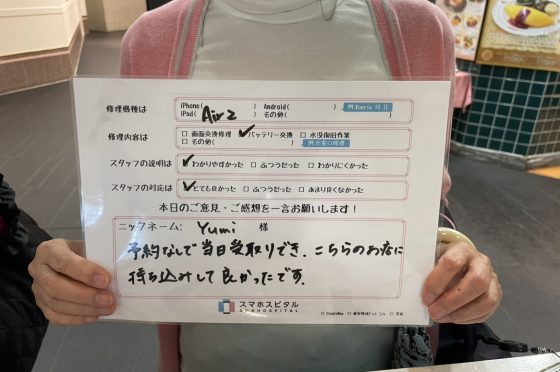 修理機種は iPhone( ) Android( ) 例:Xperia 10 II
iPad( Air2 ) その他( )
修理内容は □ 画面交換修理 ☑ バッテリー交換 □ 水没復旧作業
□ その他( ) 例:充電口修理
スタッフの説明は ☑ わかりやすかった □ ふつうだった □ わかりにくかった
スタッフの対応は ☑ とても良かった □ ふつうだった □ あまり良くなかった
本日のご意見・ご感想を一言お願いします！
ニックネーム: Yumi 様
予約なしで当日受取りでき、こちらのお店に
持ち込みして良かったです。
スマホスピタル
SMAHOSPITAL
□ GoogleMap □ 最安修理ドットコム □ 写真